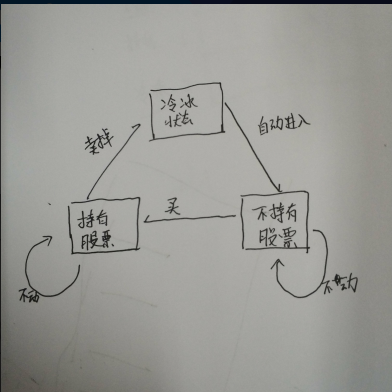 冷冰
状态
卖掉
自动进入
持有
股票
买
不持有
股票
不动
不动